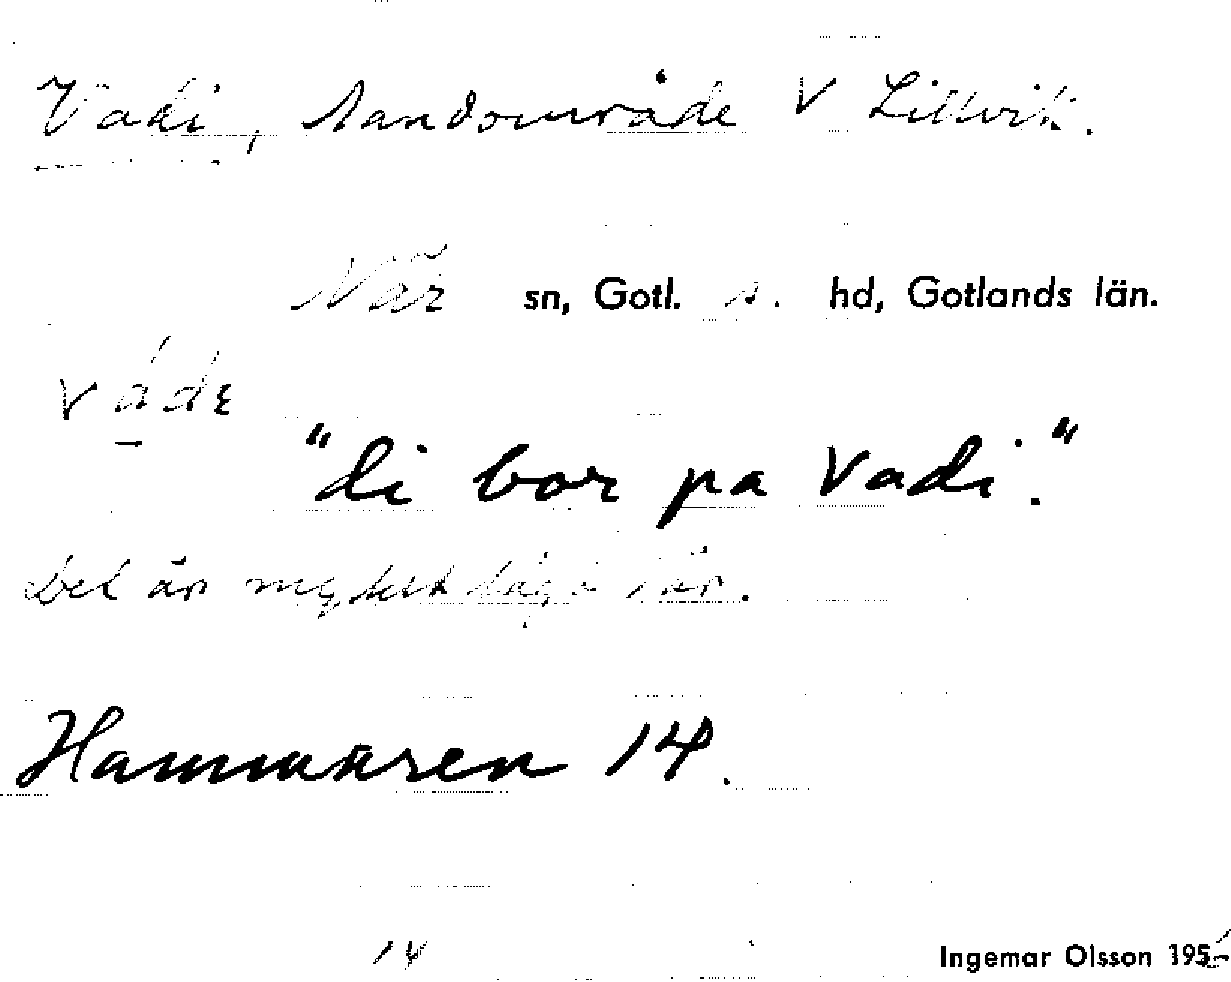 Vadi, Sandområde V Lillvik.
När sn, Gotl. s. hd, Gotlands län.
våde
"di bor pa Vadi."
Det är mycket lågt där.
Hammaren 14.
14
Ingemar Olsson 195